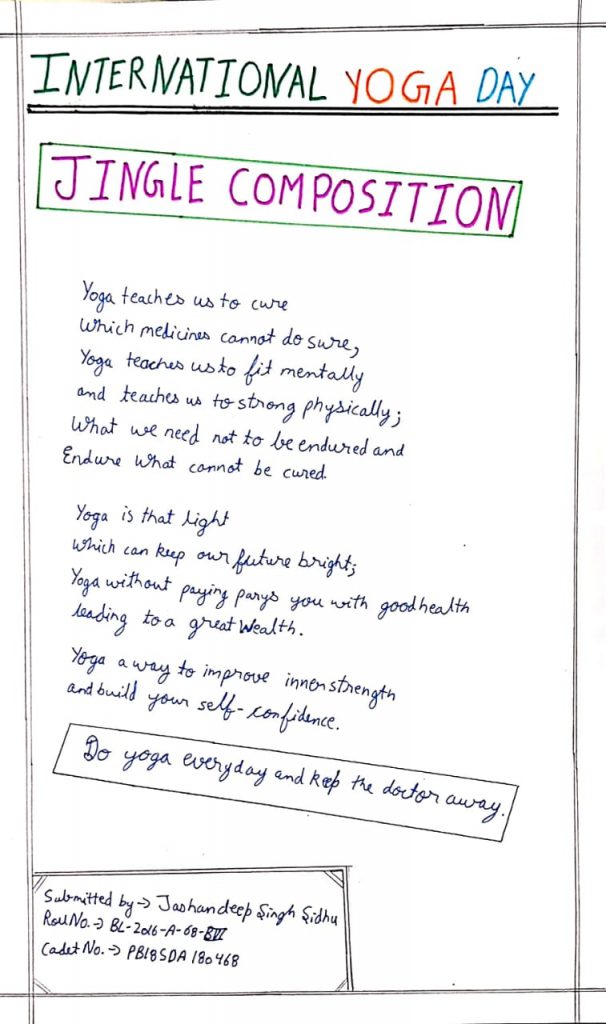 INTERNATIONAL YOGA DAY
JINGLE COMPOSITION
Yoga teaches us to cure
Which medicines cannot do sure,
Yoga teaches us to fit mentally
and teaches us to strong physically;
What we need not to be endured and
Endure what cannot be cured.
Yoga is that light
Which can keep our future bright;
Yoga without paying parys you with good health
leading to a great wealth.
Yoga a way to improve inner strength
and build your self-confidence.
Do yoga everyday and keep the doctor away.
Submitted by → Jashandeep Singh Sidhu
Roll No. → BL-2016-A-68-BVI
Cadet No. → PB18SDA180468